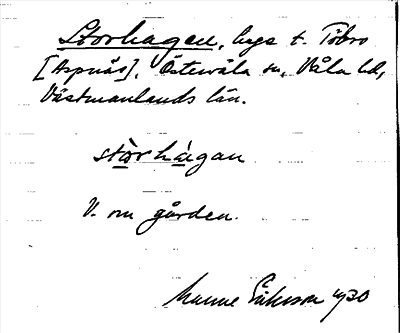 Storhagen, lägs t. Töbro
[Aspnäs], Östervåla sn, Våla hd,
Västmanlands län.
stòrhàgan
V. om gården.
Manne Eriksson 1930